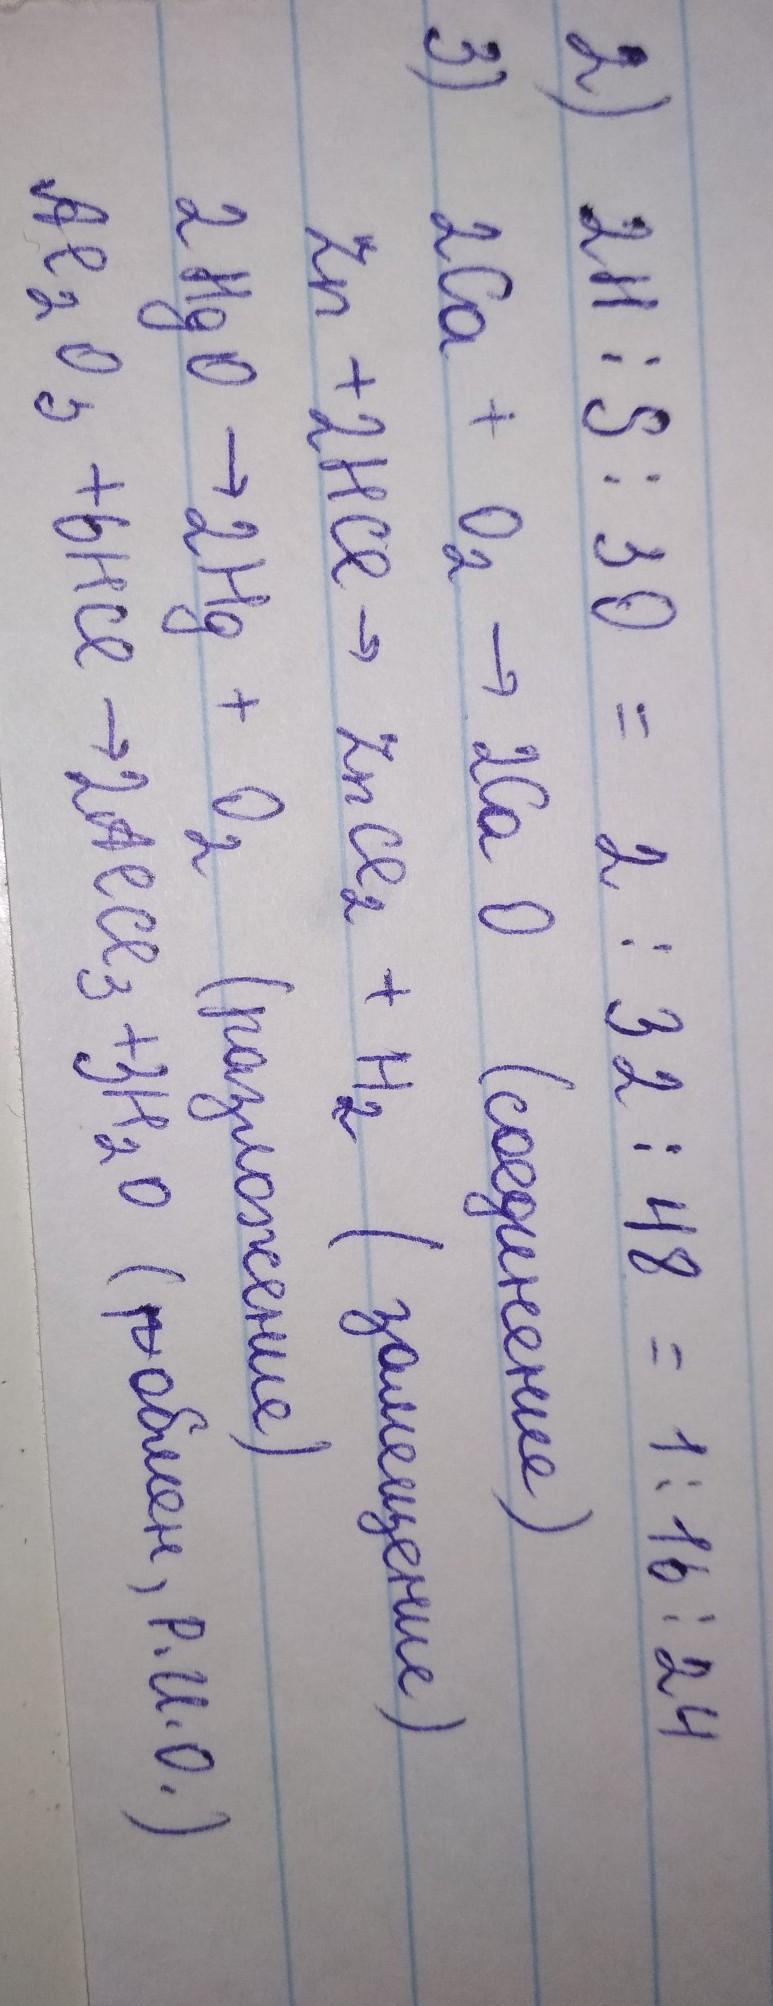 2) 2H : S : 3O = 2 : 32 : 48 = 1 : 16 : 24
3) 2Ca + O₂ → 2CaO (соединение)
Zn + 2HCl → ZnCl₂ + H₂ (замещение)
2HgO → 2Hg + O₂ (разложение)
Al₂O₃ + 6HCl → 2AlCl₃ + 3H₂O (обмен, Р.И.О.)